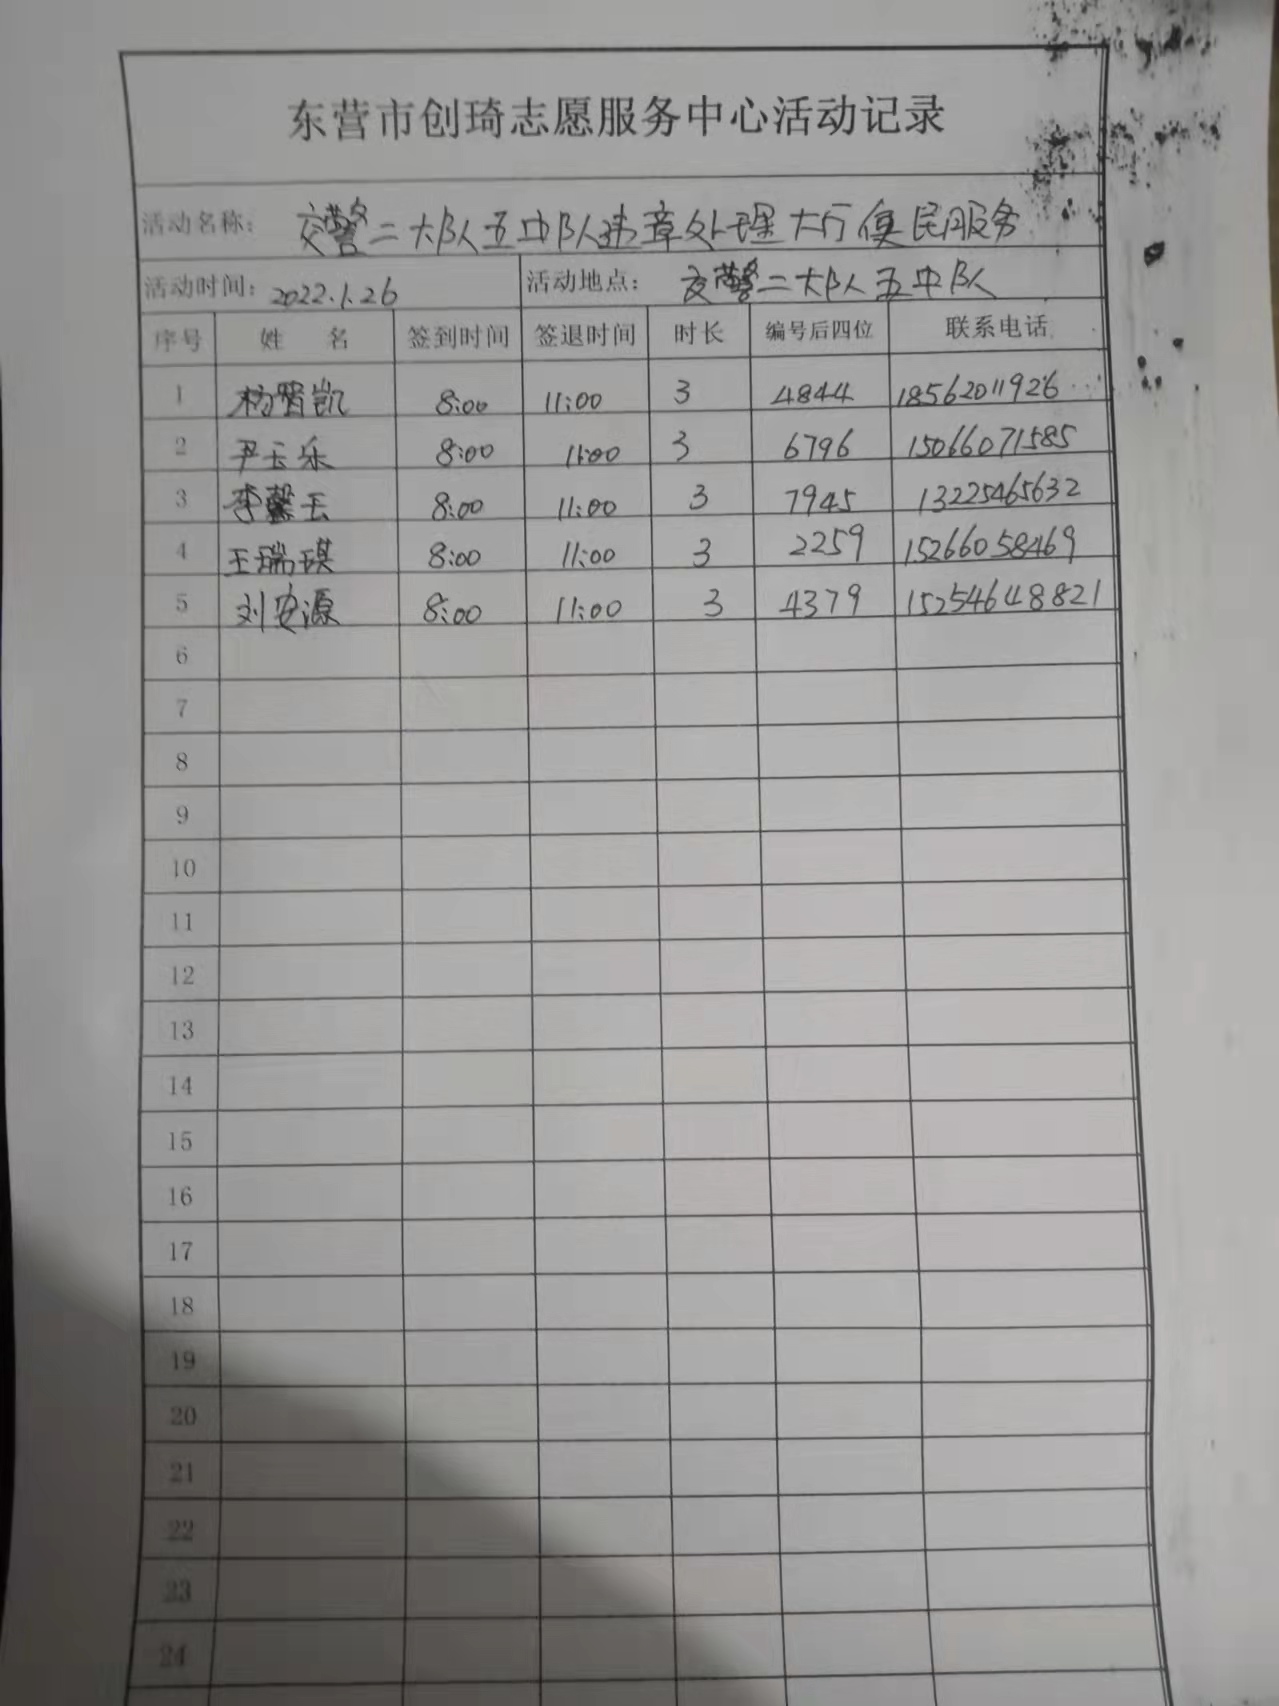 东营市创琦志愿服务中心活动记录
活动名称: 交警二大队五中队违章处理大厅便民服务
活动时间: 2022.1.26 活动地点: 交警二大队五中队
序号 姓 名 签到时间 签退时间 时长 编号后四位 联系电话
1 杨凯 8:00 11:00 3 4844 18562011926
2 尹玉乐 8:00 11:00 3 6796 15066071585
3 李馨玉 8:00 11:00 3 7945 13225465632
4 王瑞琪 8:00 11:00 3 2259 15266058469
5 刘安源 8:00 11:00 3 4379 15254648821
6
7
8
9
10
11
12
13
14
15
16
17
18
19
20
21
22
23
24